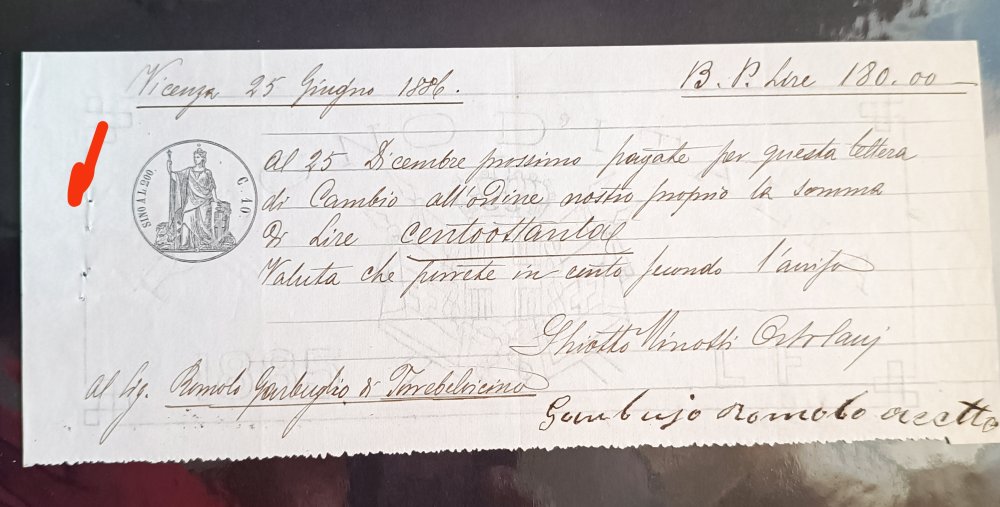 Vicenza 25 Giugno 1886.
B. P. Lire 180.00
SINO A L. 200.
C. 10.
Al 25 Dicembre prossimo pagate per questa lettera
di Cambio all'ordine nostro proprio la somma
di Lire centoottanta
Valuta che porrete in conto secondo l'avviso
Ghiotto Minotti Ortolani
Al Sig. Romolo Garbuglio di Torrebelvicino
Garbujo Romolo acetto